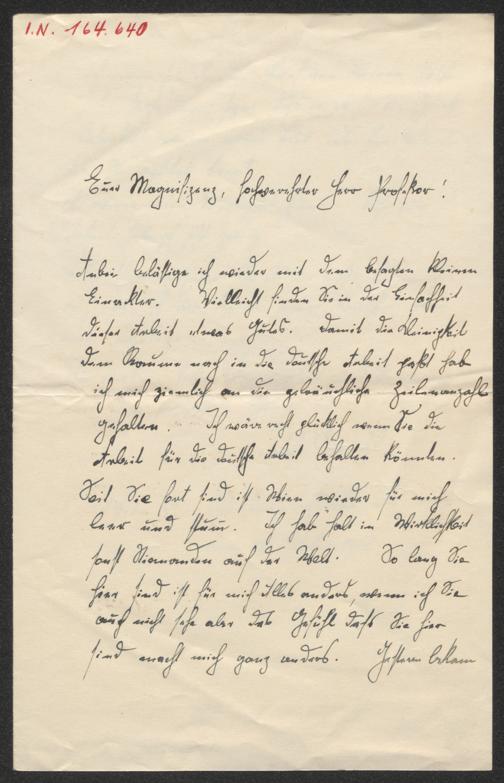 I.N. 164.640
Euer Magnifizenz, hochverehrter Herr Professor!
Anbei belästige ich wieder mit dem besagten kleinen
Einakter. Vielleicht finden Sie in der Einfachheit
dieser Arbeit etwas Gutes. Damit die Kleinigkeit
dem Raume nach in die deutsche Arbeit paßt hab
ich mich ziemlich an die gebräuchliche Zeilenanzahl
gehalten. Ich wäre recht glücklich wenn Sie die
Arbeit für die deutsche Arbeit behalten könnten.
Seit Sie fort sind ist Wien wieder für mich
leer und stumm. Ich hab halt in Wirklichkeit
sonst Niemanden auf der Welt. So lang Sie
hier sind ist für mich Alles anders, wenn ich Sie
auch nicht sehe aber das Gefühl daß Sie hier
sind macht mich ganz anders. Gestern bekam